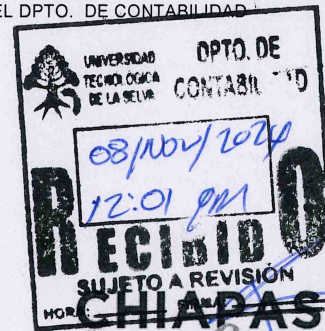 EL DPTO. DE CONTABILIDAD
UNIVERSIDAD
TECNOLÓGICA
DE LA SELVA
DPTO. DE
CONTABIL D
08/NOV/2024
12:01 PM
RECIBIDO
SUJETO A REVISIÓN
HOR
CHIAPAS